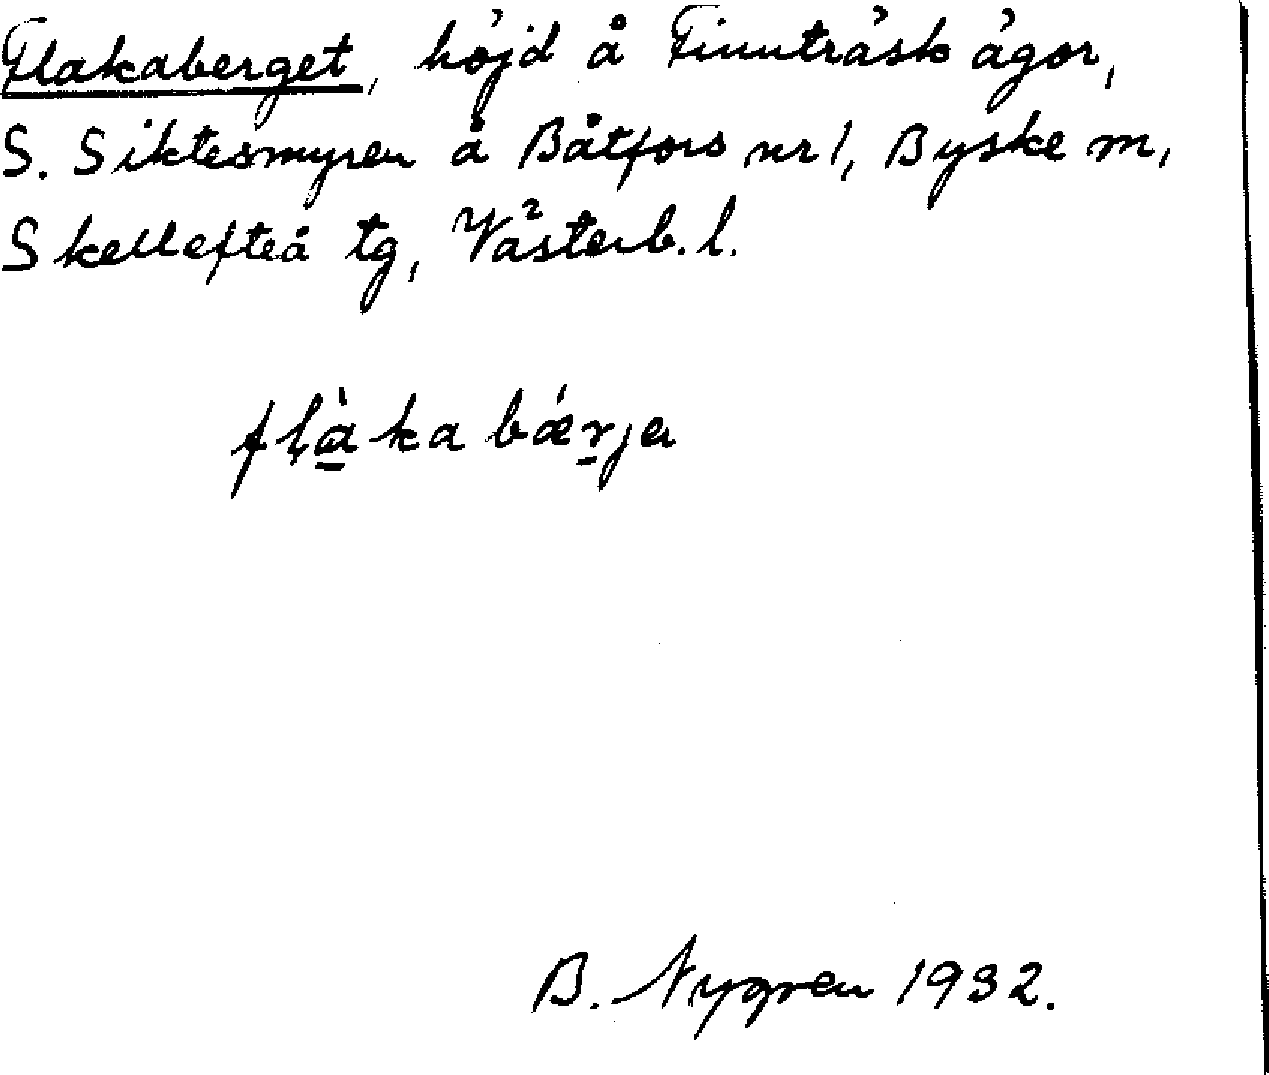 Flakaberget, höjd å Finnträsk ägor,
S. Siktesmyren å Båtfors nr 1, Byske sn,
Skellefteå tg, Västerb. l.
fḷà̠ka bǽr̠ja
B. Nygren 1932.